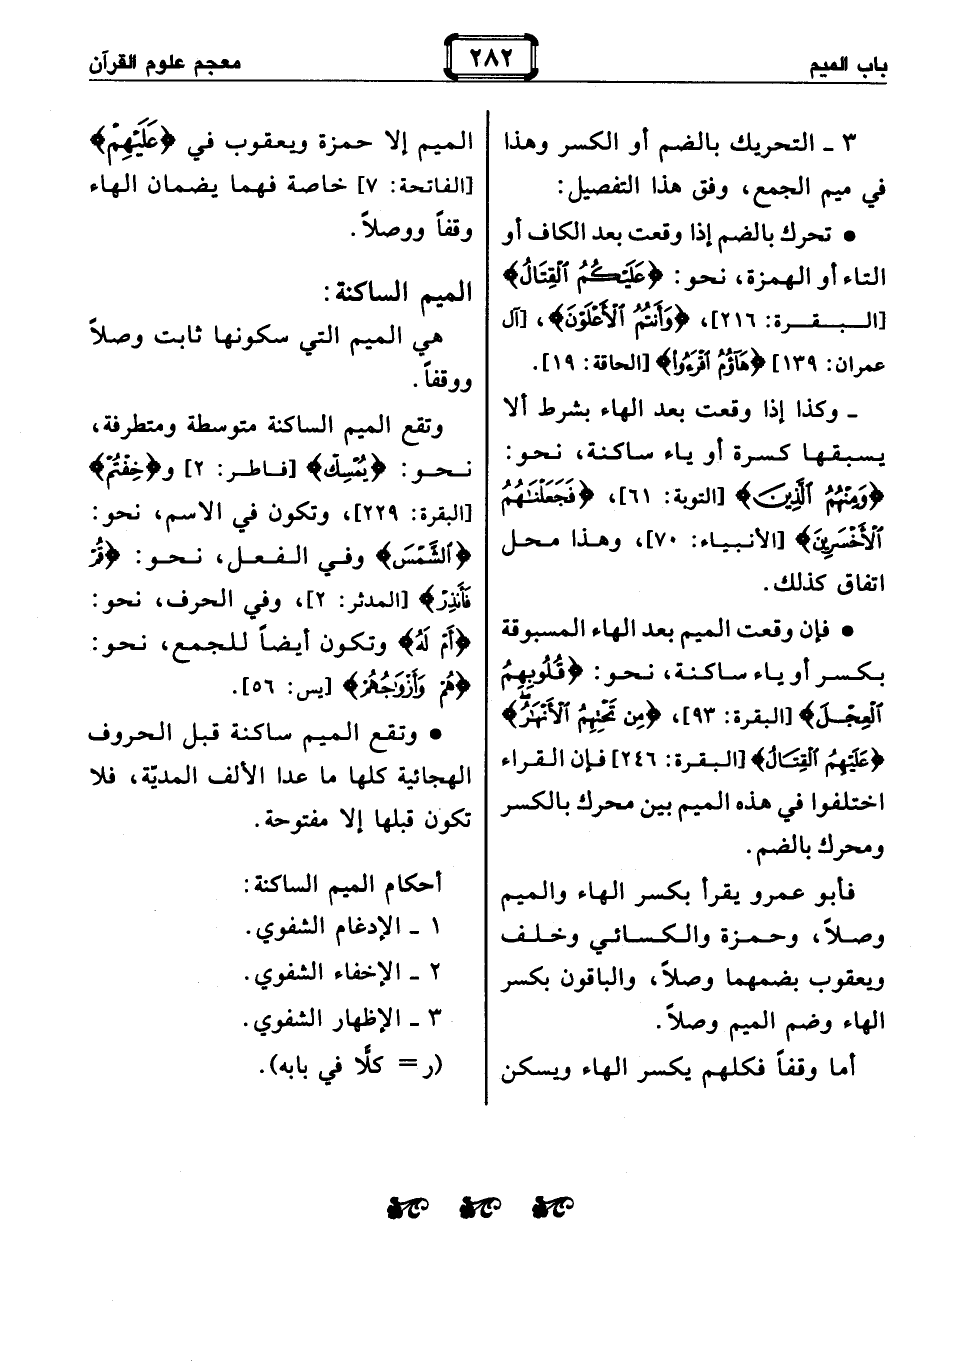 باب الميم
٢٨٢
معجم علوم القرآن
٣ ـ التحريك بالضم أو الكسر وهذا
في ميم الجمع، وفق هذا التفصيل:
• تحرك بالضم إذا وقعت بعد الكاف أو
التاء أو الهمزة، نحو: ﴿عَلَيْكُمُ ٱلْقِتَالُ﴾
[البـقـرة: ٢١٦]، ﴿وَأَنتُمُ ٱلْأَعْلَوْنَ﴾، [آل
عمران: ١٣٩] ﴿هَآؤُمُ ٱقْرَءُوا۟﴾ [الحاقة: ١٩].
ـ وكذا إذا وقعت بعد الهاء بشرط ألا
يسبقها كسرة أو ياء ساكنة، نحو:
﴿وَمِنْهُمُ ٱلَّذِينَ﴾ [التوبة: ٦١]، ﴿فَجَعَلْنَٰهُمُ
ٱلْأَخْسَرِينَ﴾ [الأنبياء: ٧٠]، وهذا محل
اتفاق كذلك.
• فإن وقعت الميم بعد الهاء المسبوقة
بكسر أو ياء ساكنة، نحو: ﴿قُلُوبِهِمُ
ٱلْعِجْلَ﴾ [البقرة: ٩٣]، ﴿مِن تَحْتِهِمُ ٱلْأَنْهَٰرُ﴾
﴿عَلَيْهِمُ ٱلْقِتَالُ﴾ [البقرة: ٢٤٦] فإن القراء
اختلفوا في هذه الميم بين محرك بالكسر
ومحرك بالضم.
فأبو عمرو يقرأ بكسر الهاء والميم
وصلاً، وحمزة والكسائي وخلف
ويعقوب بضمهما وصلاً، والباقون بكسر
الهاء وضم الميم وصلاً.
أما وقفاً فكلهم يكسر الهاء ويسكن
الميم إلا حمزة ويعقوب في ﴿عَلَيْهِمْ﴾
[الفاتحة: ٧] خاصة فهما يضمان الهاء
وقفاً ووصلاً.
الميم الساكنة:
هي الميم التي سكونها ثابت وصلاً
ووقفاً.
وتقع الميم الساكنة متوسطة ومتطرفة،
نحو: ﴿يُمْسِكْ﴾ [فاطر: ٢] و﴿خِفْتُمْ﴾
[البقرة: ٢٢٩]، وتكون في الاسم، نحو:
﴿ٱلشَّمْسَ﴾ وفي الفعل، نحو: ﴿قُمْ
فَأَنذِرْ﴾ [المدثر: ٢]، وفي الحرف، نحو:
﴿أَمْ لَهُ﴾ وتكون أيضاً للجمع، نحو:
﴿هُمْ وَأَزْوَٰجُهُمْ﴾ [يس: ٥٦].
• وتقع الميم ساكنة قبل الحروف
الهجائية كلها ما عدا الألف المديّة، فلا
تكون قبلها إلا مفتوحة.
أحكام الميم الساكنة:
١ ـ الإدغام الشفوي.
٢ ـ الإخفاء الشفوي.
٣ ـ الإظهار الشفوي.
(ر= كلًّا في بابه).